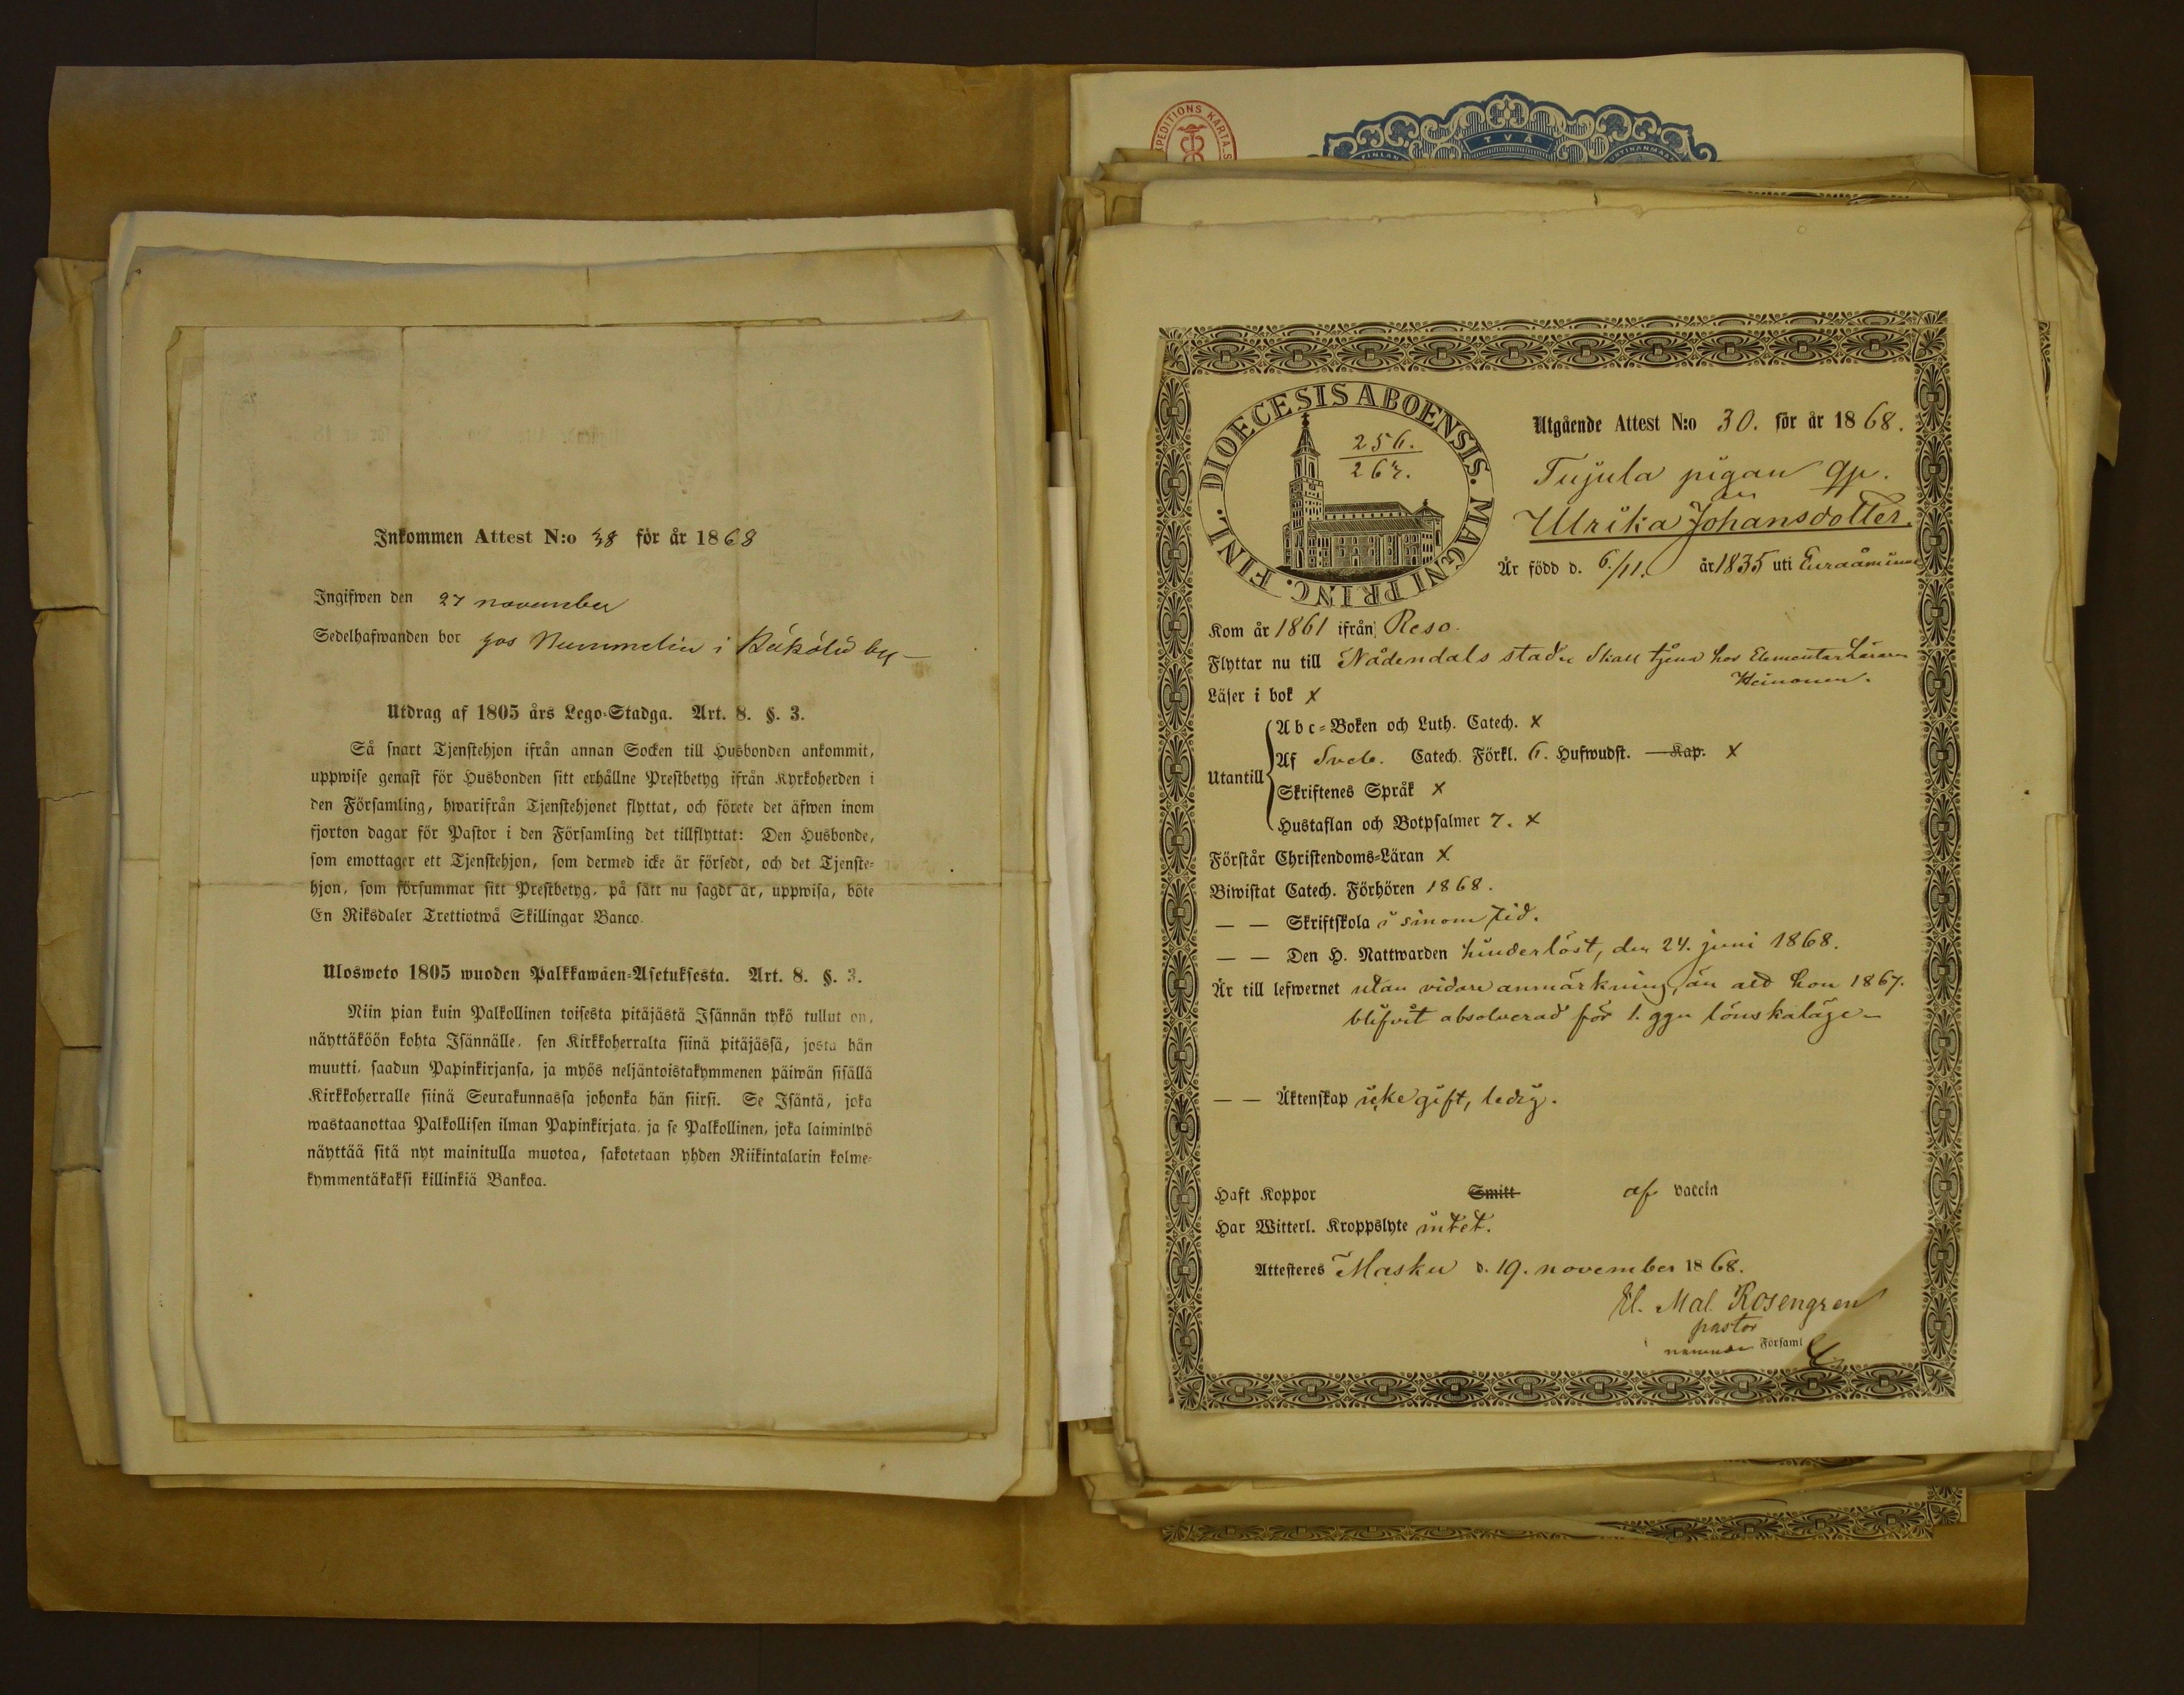 Inkommen Attest N:o 38 för år 1868
Ingifwen den 27 november
Sedelhafwanden bor hos Nummelin i by
Utdrag af 1805 års Lego-Stadga. Art. 8. §. 3.
Så snart Tjenstehjon ifrån annan Socken till Husbonden ankommit,
uppwise genast för Husbonden sitt erhållne Prestbetyg ifrån Kyrkoherden i
den Församling, hwarifrån Tjenstehjonet flyttat, och förete det äfwen inom
fjorton dagar för Pastor i den Församling det tillflyttat: Den Husbonde,
som emottager ett Tjenstehjon, som dermed icke är försedt, och det Tjenste-
hjon, som försummar sitt Prestbetyg, på sätt nu sagdt är, uppwisa, böte
En Riksdaler Trettiotwå Skillingar Banco.
Ulosweto 1805 wuoden Palkkawäen-Asetuksesta. Art. 8. §. 3.
Niin pian kuin Palkollinen toisesta pitäjästä Isännän tykö tullut on,
näyttäköön kohta Isännälle, sen Kirkkoherralta siinä pitäjässä, josta hän
muutti, saadun Papinkirjansa, ja myös neljäntoistakymmenen päiwän sisällä
Kirkkoherralle siinä Seurakunnassa johonka hän siirsi. Se Isäntä, joka
wastaanottaa Palkollisen ilman Papinkirjata, ja se Palkollinen, joka laiminlyö
näyttää sitä nyt mainitulla muotoa, sakotetaan yhden Riikintalarin kolme-
kymmentäkaksi killinkiä Bankoa.
EXPEDITIONS KARTA. S
TVÅ
DIOECESIS ABOENSIS. MAGNI PRINC. FINL.
256.
267.
Utgående Attest N:o 30. för år 1868.
Tujula pigan qp.
Ulrika Johansdotter.
Är född d. 6/11. år 1835 uti Euraåminne
Kom år 1861 ifrån Reso.
Flyttar nu till Nådendals stad skall tjena hos Elementar Läraren
Heinonen.
Läser i bok x
Utantill
Abc-Boken och Luth. Catech. x
Af Sveb. Catech. Förkl. 6. Hufwudst. Kap. x
Skriftenes Språk x
Hustaflan och Botpsalmer 7. x
Förstår Christendoms-Läran x
Biwistat Catech. Förhören 1868.
— — Skriftskola i sinom tid.
— — Den H. Nattwarden hinderlöst, den 24. juni 1868.
Är till lefwernet utan vidare anmärkning, än att hon 1867.
blifvit absolverad för 1. ggn lönskaläge
— — Äktenskap icke gift, ledig.
Haft Koppor Smitt af vaccin
Har Witterl. Kroppslyte intet.
Attesteres Masku d. 19. november 1868.
El. Mal. Rosengren
pastor
Församl